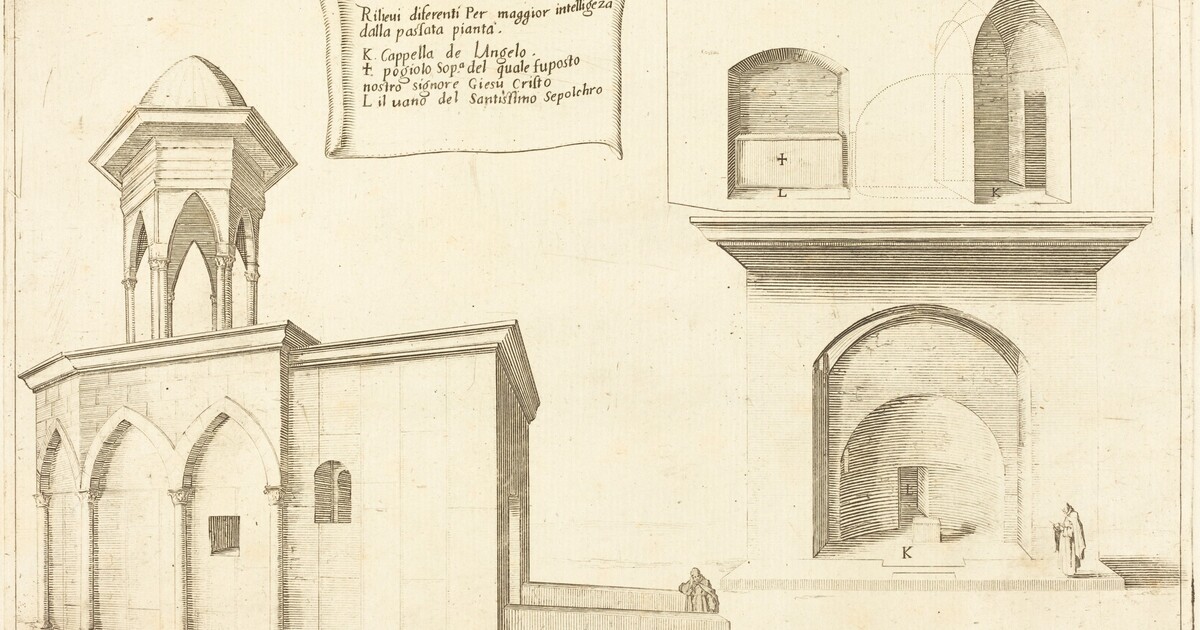 Rilieui diferenti Per maggior intelligeza
dalla passata pianta.
K. Cappella de LAngelo.
✝. pogiolo Sop.ª del quale fuposto
nostro signore Giesù Cristo
L il uano del Santissimo Sepolchro
✝
L
K
L
K